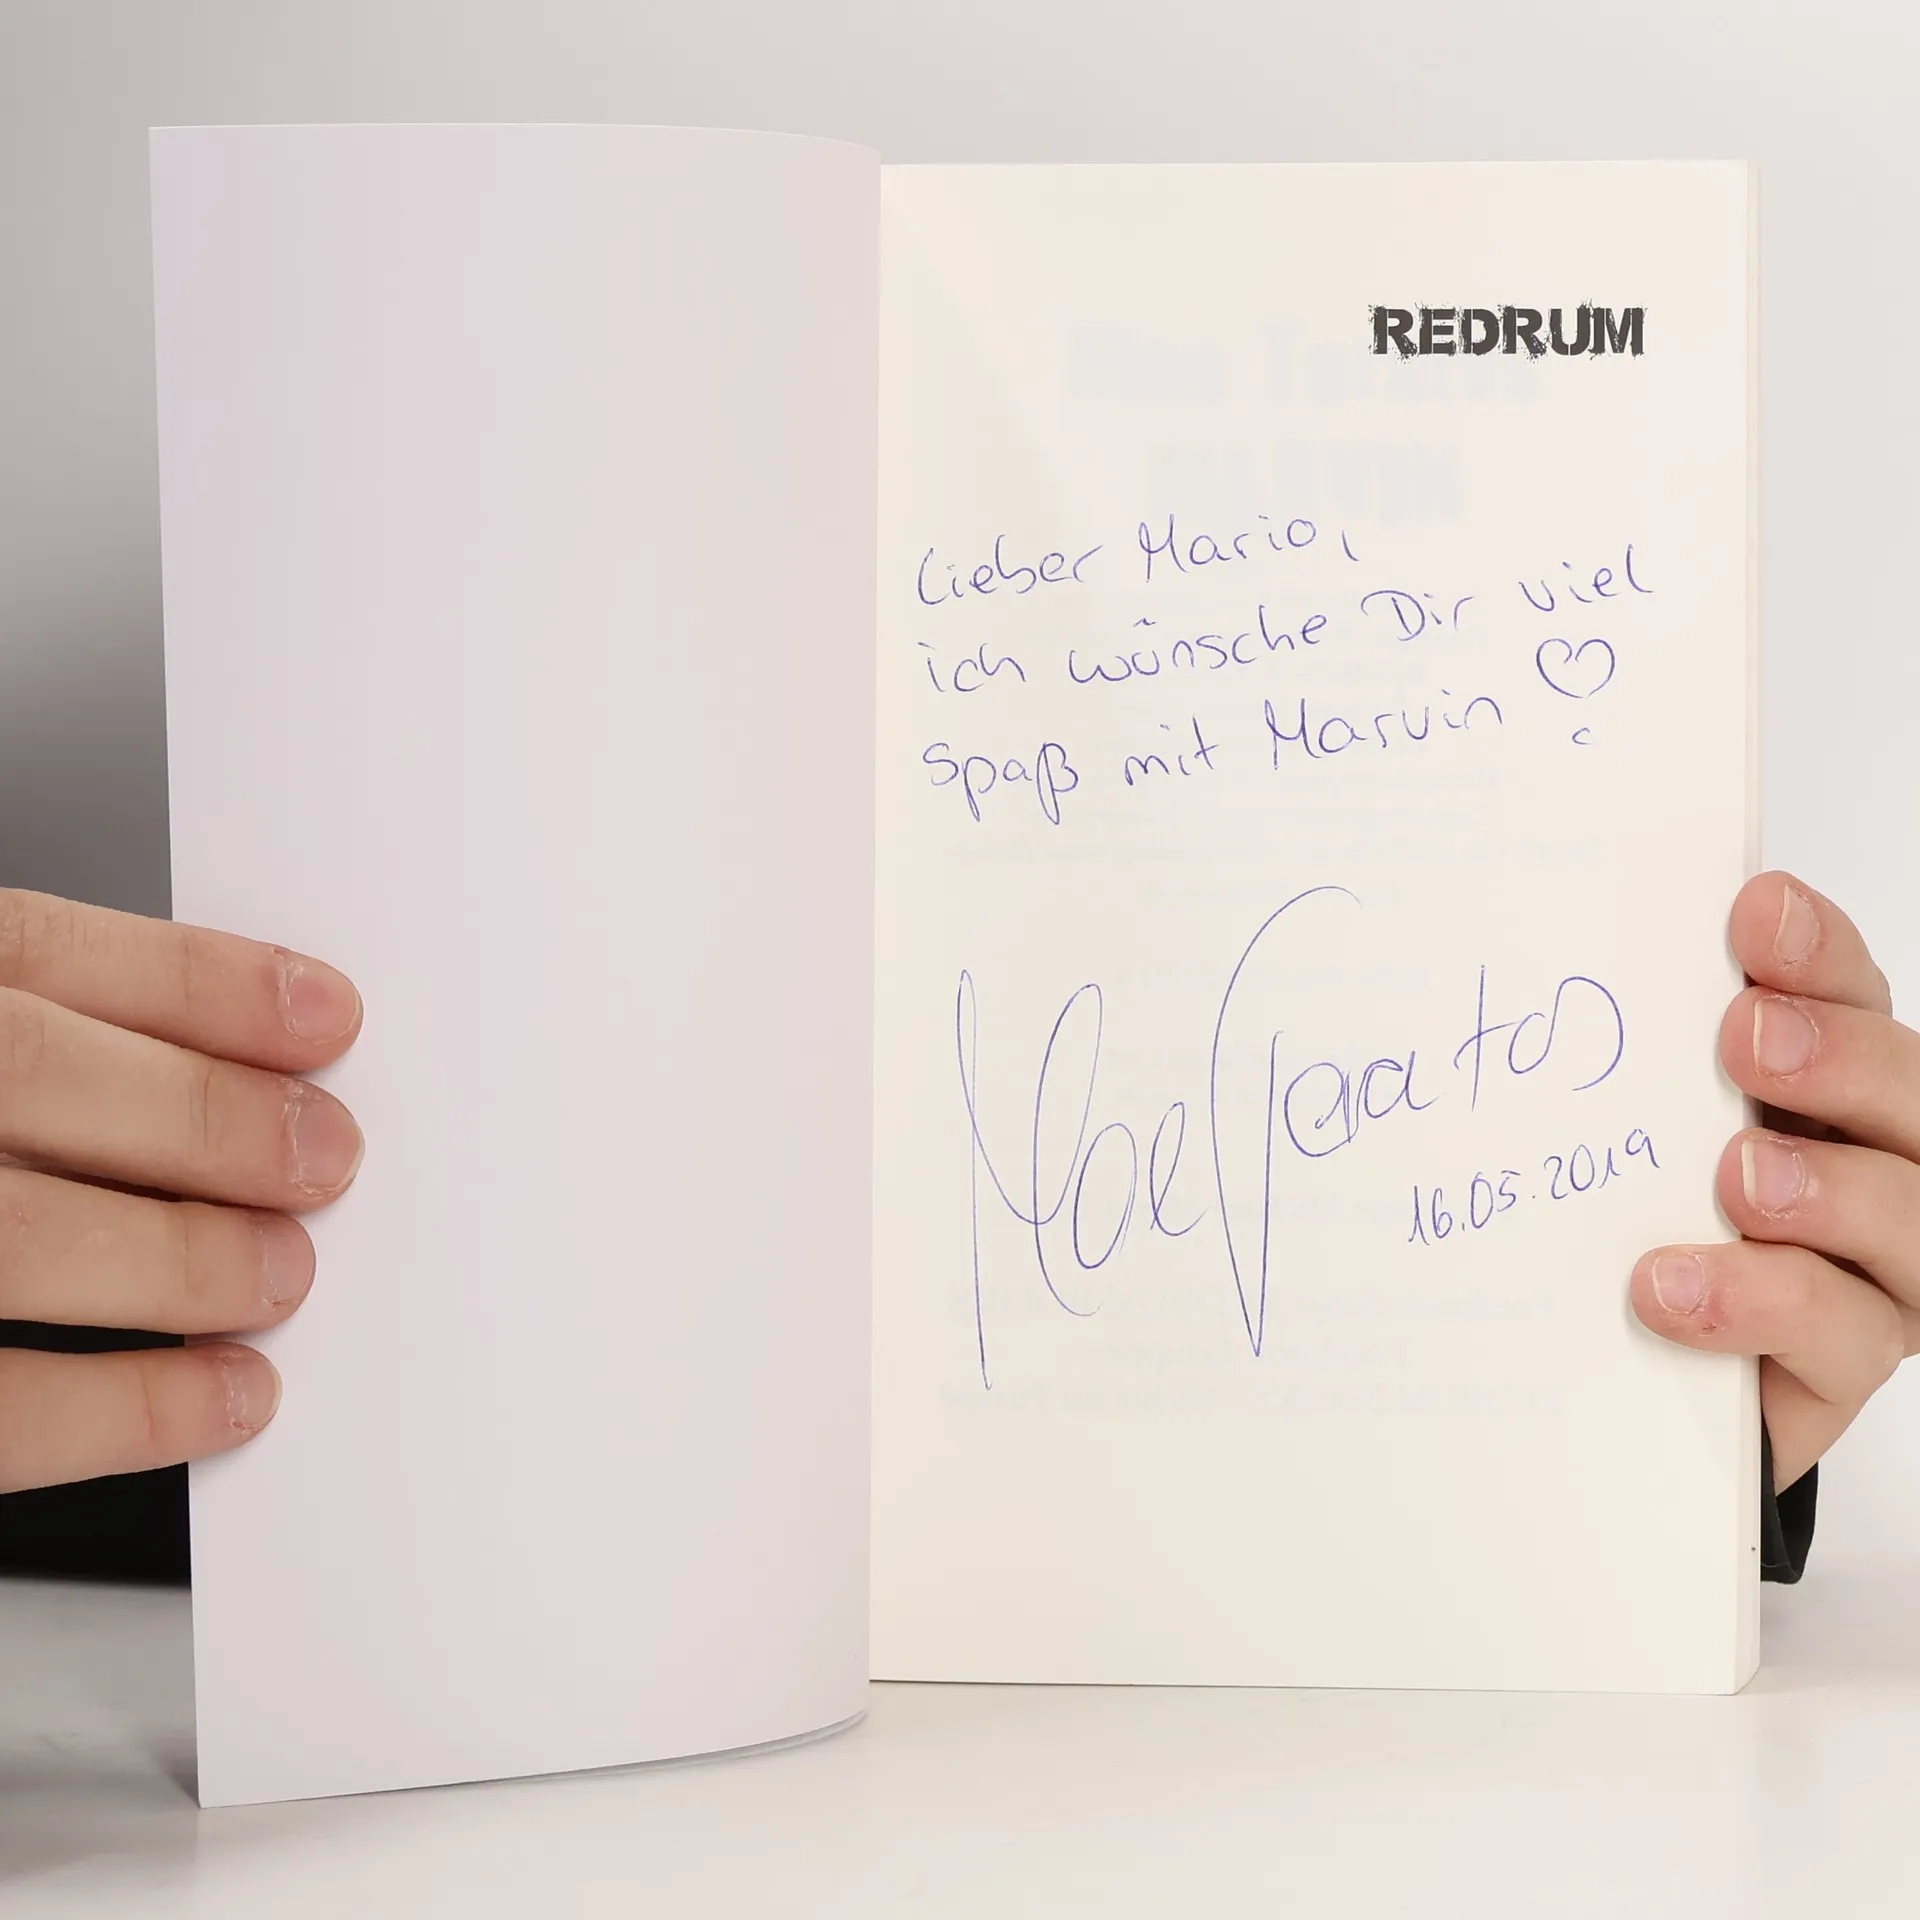 REDRUM
Lieber Mario,
ich wünsche Dir viel
Spaß mit Marvin ♡
Moe Teratos
16.05.2019